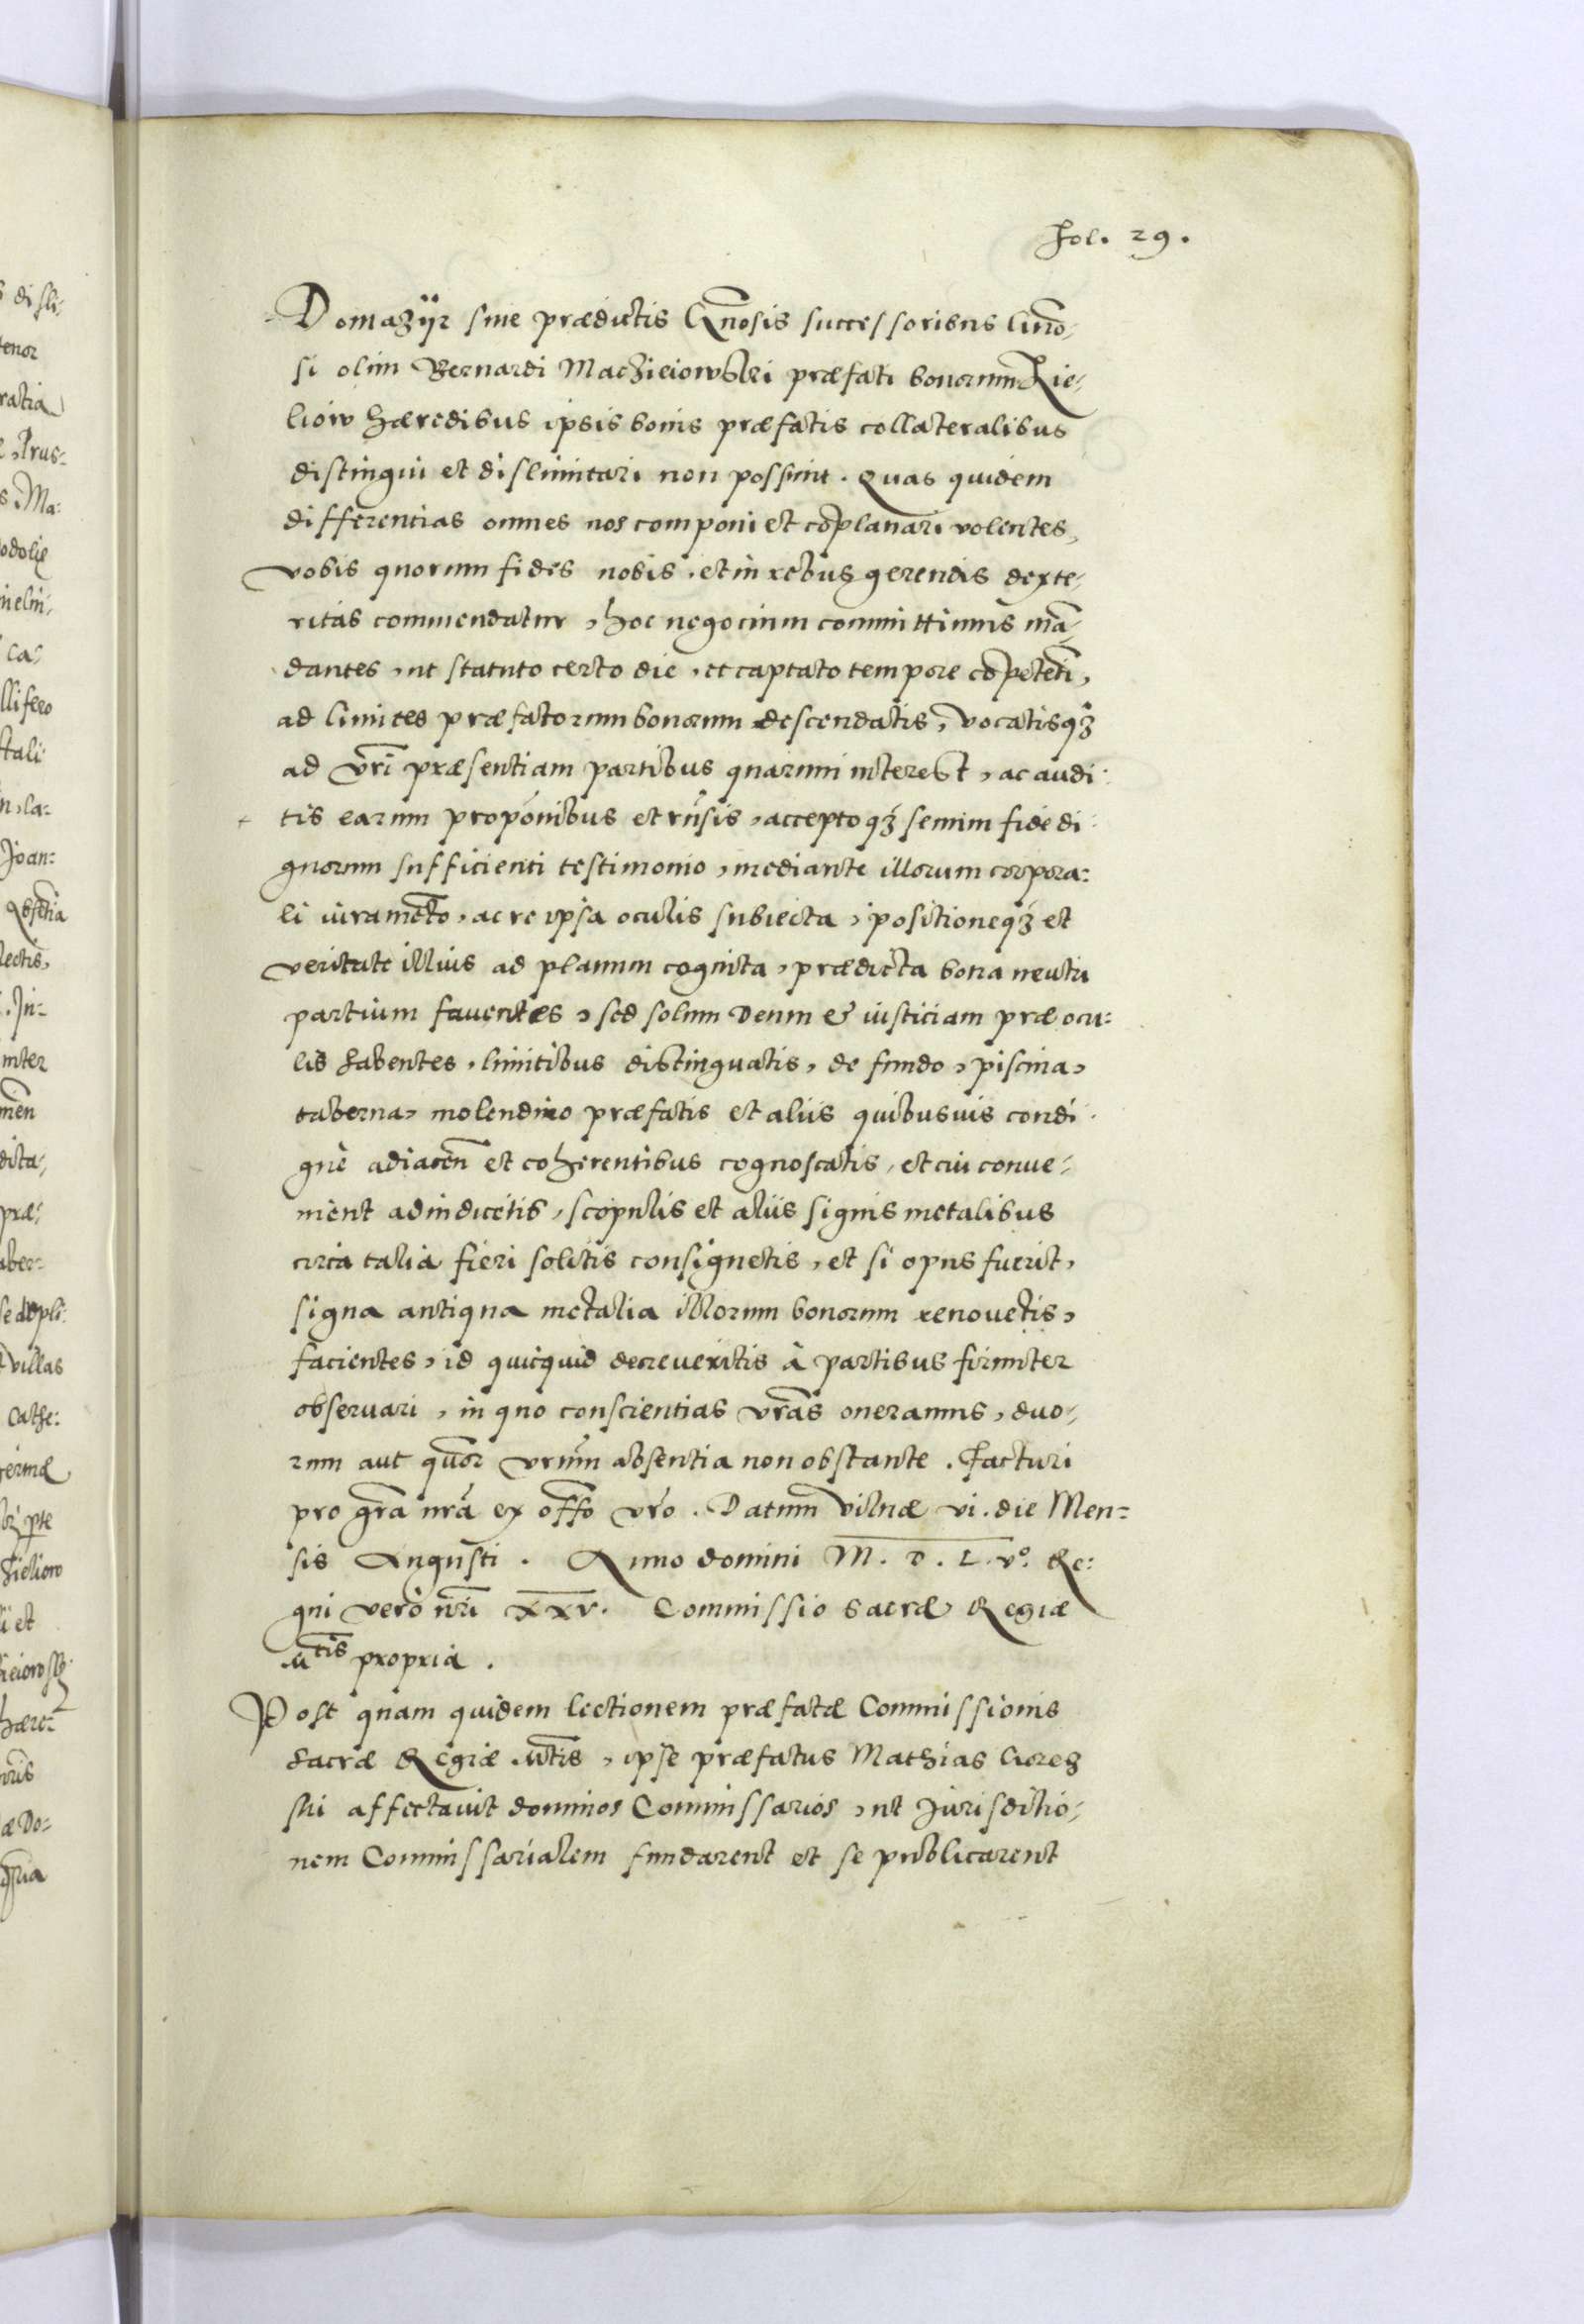 Fol. 29.
Domazÿr siue prædictis Gn̄osis successoribus Gn̄o-
si olim Bernardi Machieiowski præfati bonorum Kie-
liow hæredibus ipsis bonis præfatis collateralibus
distingui et dislimitari non possunt. Quas quidem
differentias omnes nos componi et cōplanari volentes,
vobis quorum fides nobis, et in rebus gerendis dexte-
ritas commendatur, hoc negocium committimus mā-
dantes, ut statuto certo die, et captato tempore cōpetēti,
ad limites præfatorum bonorum descendatis, vocatisqȝ
ad vr̄i præsentiam partibus quarum interest, ac audi-
tis earum propōnibus et rn̄sis, acceptoqȝ senum fide di-
gnorum sufficienti testimonio, mediante illorum corpora-
li iuramēto, ac re ipsa oculis subiecta, positioneqȝ et
veritate illius ad planum cognita, prædicta bona neutri
partium fauentes, sed solum Deum & iusticiam præ ocu-
lis habentes, limitibus distinguatis, de fundo, piscina,
taberna, molendino præfatis et aliis quibusuis condi-
gnè adiacen̄ et coherentibus cognoscatis, et cui conue-
nient adiudicetis, scopulis et aliis signis metalibus
circa talia fieri solitis consignetis, et si opus fuerit,
signa antiqua metalia illorum bonorum renouetis,
facientes, id quicquid decreueritis à partibus firmiter
obseruari, in quo conscientias vr̄as oneramus, duo-
rum aut quor̄ vrūm absentia non obstante. Facturi
pro gr̄a nr̄a ex offō vr̄o. Datum Vilnæ vi. die Men-
sis Augusti. Anno domini M. D. L. vº. Re-
gni verò nr̄i xxv. Commissio Sacræ Regiæ
Mtis propria.
Post quam quidem lectionem præfatæ Commissionis
Sacræ Regiæ Mtis, ipse præfatus Mathias Goreȝ
ski affectauit dominos Commissarios, ut Jurisditio-
nem Commissarialem fundarent et se publicarent